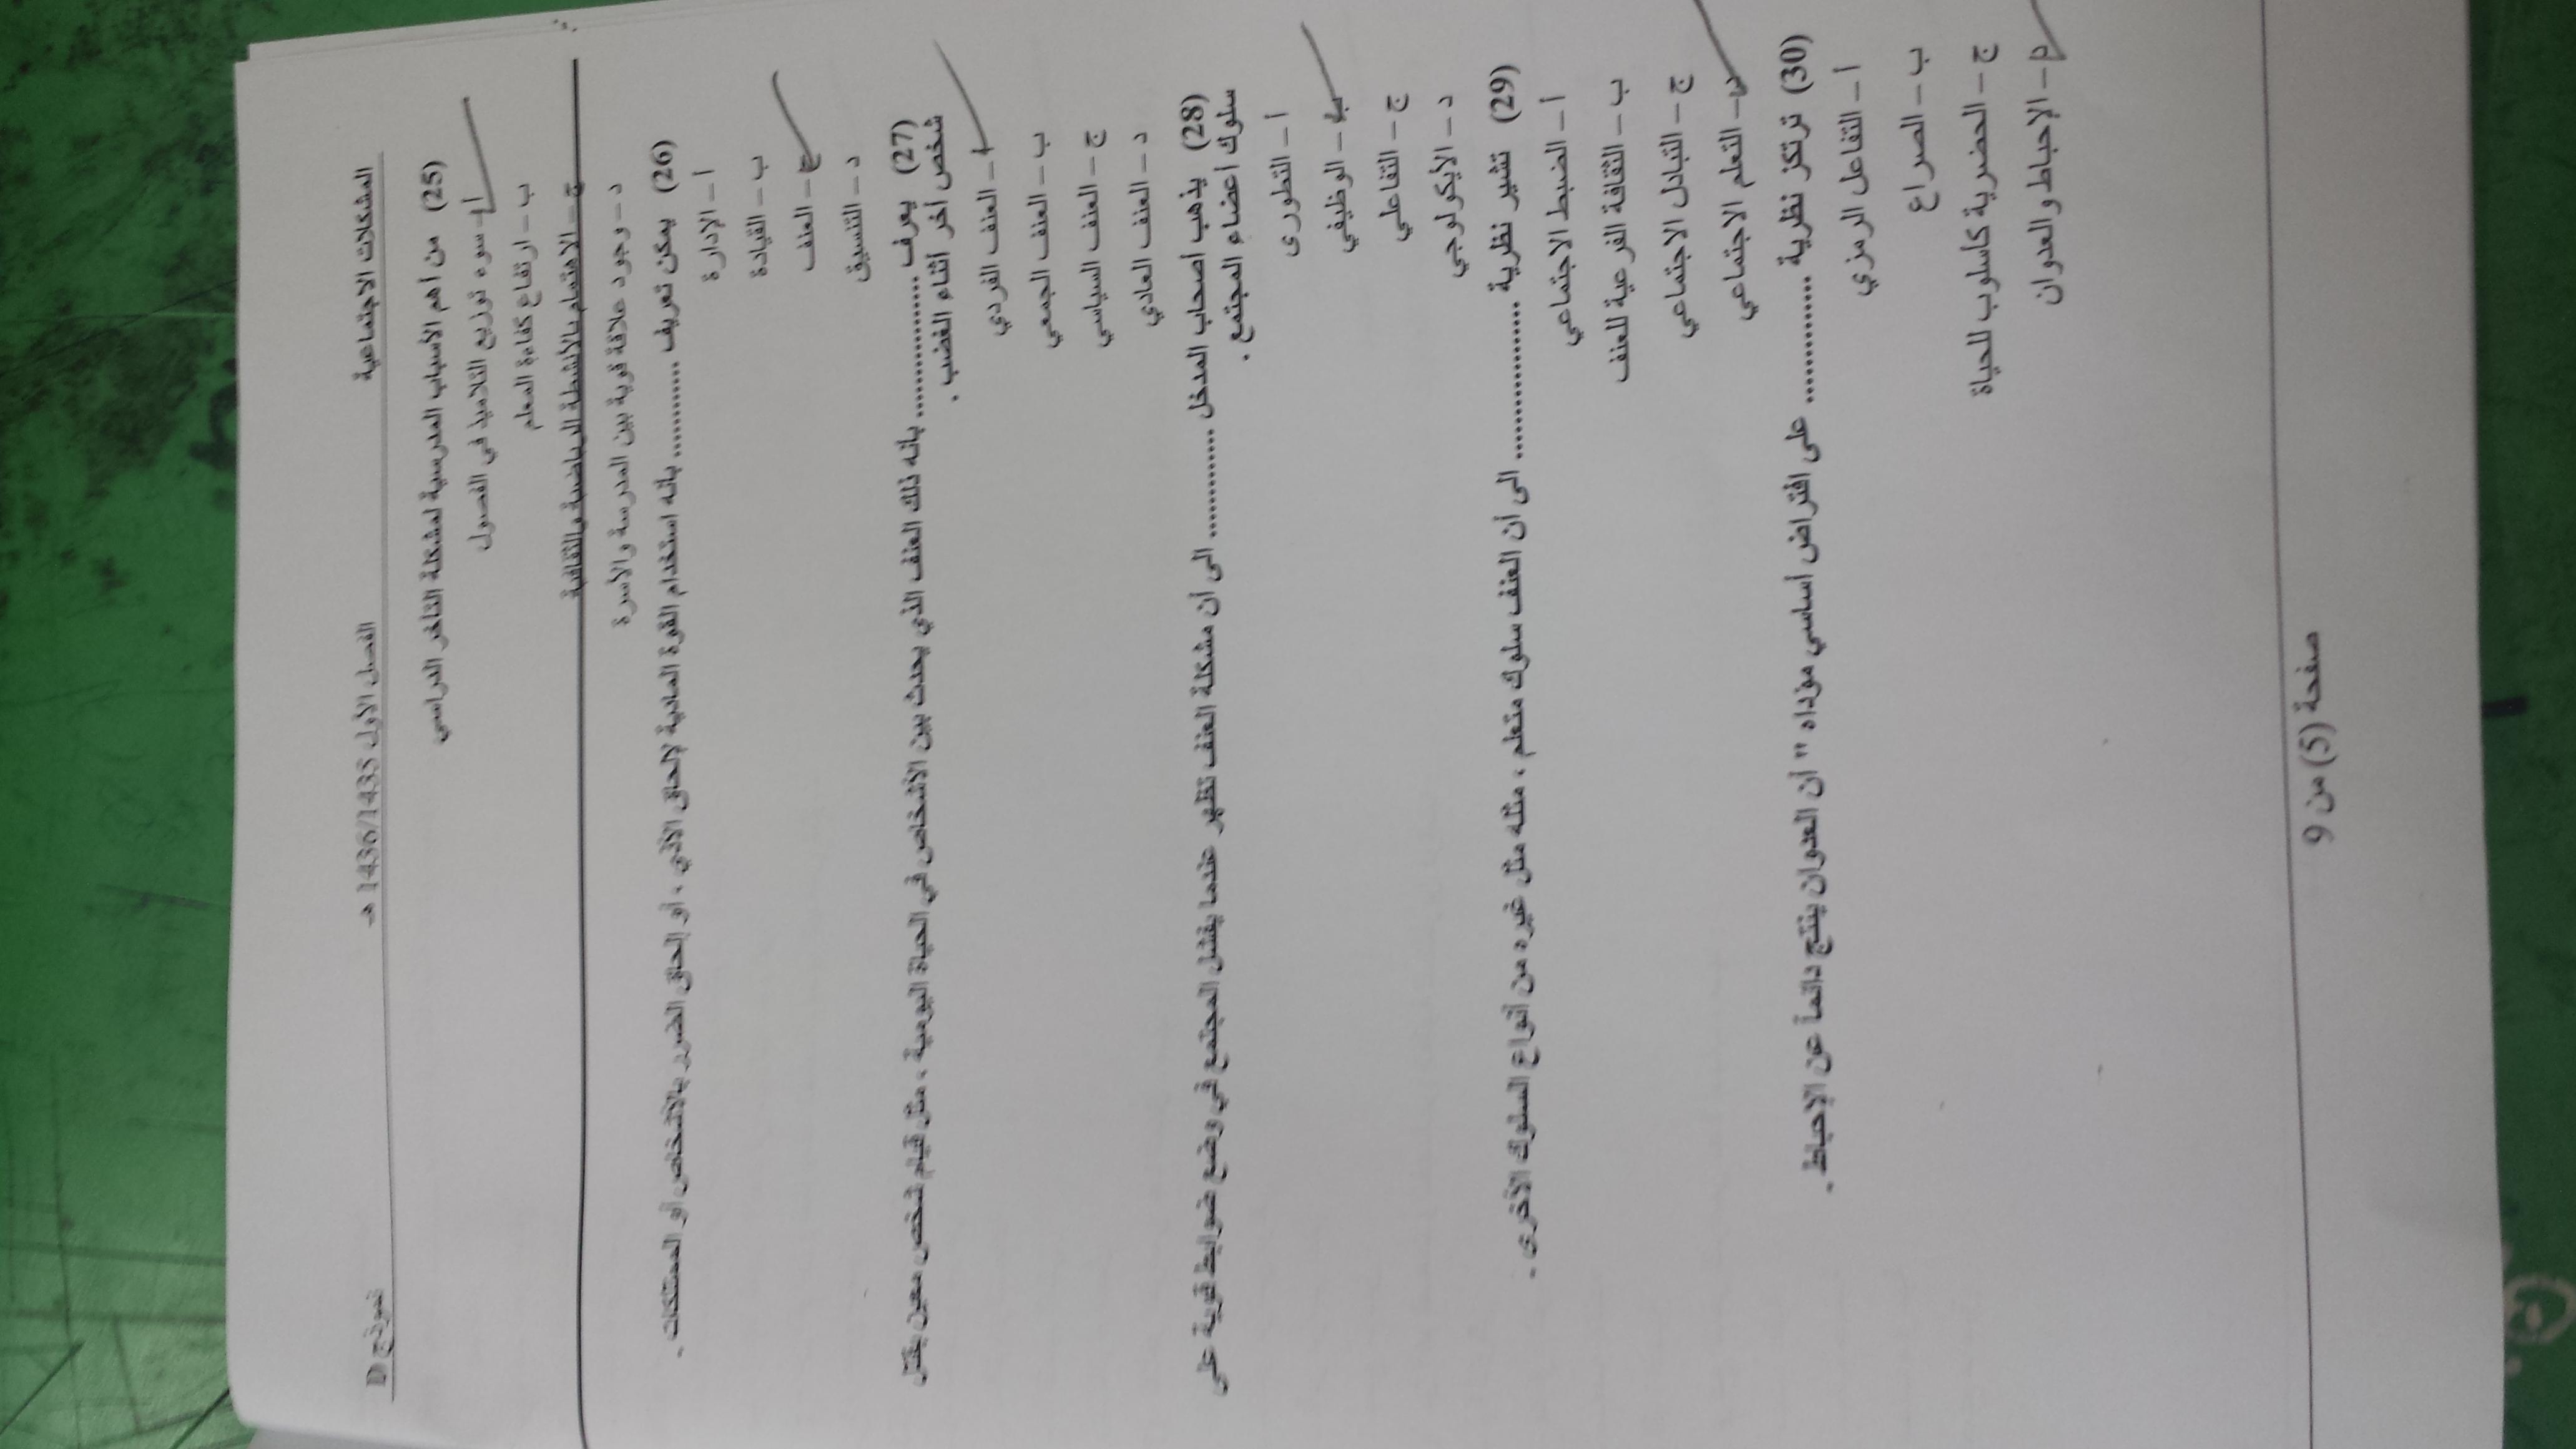 المشكلات الاجتماعية الفصل الأول 1436/1435 هـ نموذج D
(25) من أهم الأسباب المدرسية لمشكلة التأخر الدراسي
أ – سوء توزيع التلاميذ في الفصول
ب – ارتفاع كفاءة المعلم
ج – الاهتمام بالأنشطة الرياضية والثقافية
د – وجود علاقة قوية بين المدرسة والأسرة
(26) يمكن تعريف ............ بأنه استخدام القوة المادية لإلحاق الأذى ، أو إلحاق الضرر بالأشخاص أو الممتلكات .
أ – الإدارة
ب – القيادة
ج – العنف
د – التنسيق
(27) يعرف ................. بأنه ذلك العنف الذي يحدث بين الأشخاص في الحياة اليومية ، مثل قيام شخص معين بقتل
شخص أخر أثناء الغضب .
أ – العنف الفردي
ب – العنف الجمعي
ج – العنف السياسي
د – العنف العادي
(28) يذهب أصحاب المدخل ............. الى أن مشكلة العنف تظهر عندما يفشل المجتمع في وضع ضوابط قوية على
سلوك أعضاء المجتمع .
أ – التطورى
ب – الوظيفي
ج – التفاعلي
د – الأيكولوجي
(29) تشير نظرية .................. الى أن العنف سلوك متعلم ، مثله مثل غيره من أنواع السلوك الأخرى .
أ – الضبط الاجتماعي
ب – الثقافة الفرعية للعنف
ج – التبادل الاجتماعي
د – التعلم الاجتماعي
(30) ترتكز نظرية ............... على افتراض أساسي مؤداه " أن العدوان ينتج دائماً عن الإحباط .
أ – التفاعل الرمزي
ب – الصراع
ج – الحضرية كأسلوب للحياة
د – الإحباط والعدوان
صفحة (5) من 9